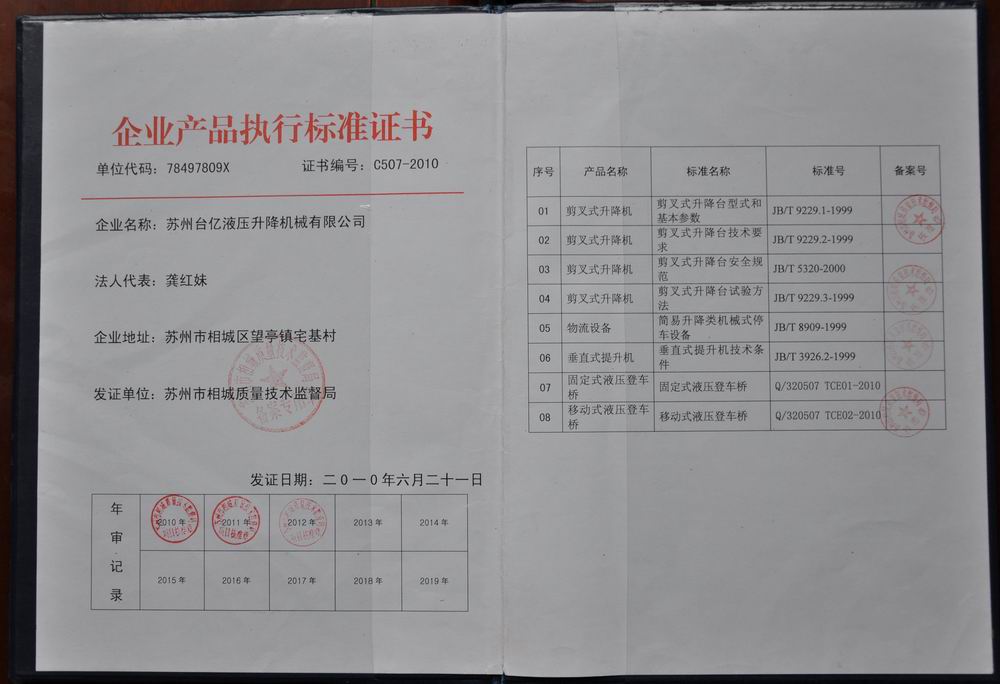 企业产品执行标准证书
单位代码：78497809X 证书编号：C507-2010
企业名称：苏州台亿液压升降机械有限公司
法人代表：龚红妹
企业地址：苏州市相城区望亭镇宅基村
发证单位：苏州市相城质量技术监督局
发证日期：二0一0年六月二十一日
年审记录
2010年 2011年 2012年 2013年 2014年
2015年 2016年 2017年 2018年 2019年
序号 产品名称 标准名称 标准号 备案号
01 剪叉式升降机 剪叉式升降台型式和基本参数 JB/T 9229.1-1999
02 剪叉式升降机 剪叉式升降台技术要求 JB/T 9229.2-1999
03 剪叉式升降机 剪叉式升降台安全规范 JB/T 5320-2000
04 剪叉式升降机 剪叉式升降台试验方法 JB/T 9229.3-1999
05 物流设备 简易升降类机械式停车设备 JB/T 8909-1999
06 垂直式提升机 垂直式提升机技术条件 JB/T 3926.2-1999
07 固定式液压登车桥 固定式液压登车桥 Q/320507 TCE01-2010
08 移动式液压登车桥 移动式液压登车桥 Q/320507 TCE02-2010